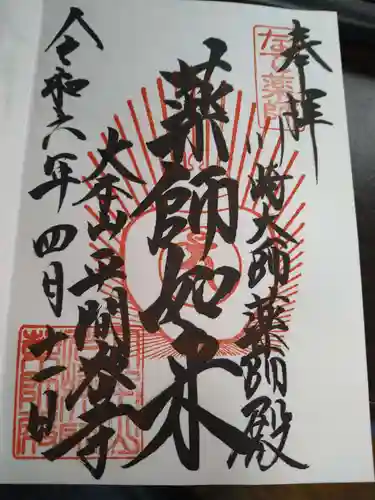 奉拝
なで薬師
川崎大師薬師殿
薬師如来
大本山平間寺
令和六年四月十一日